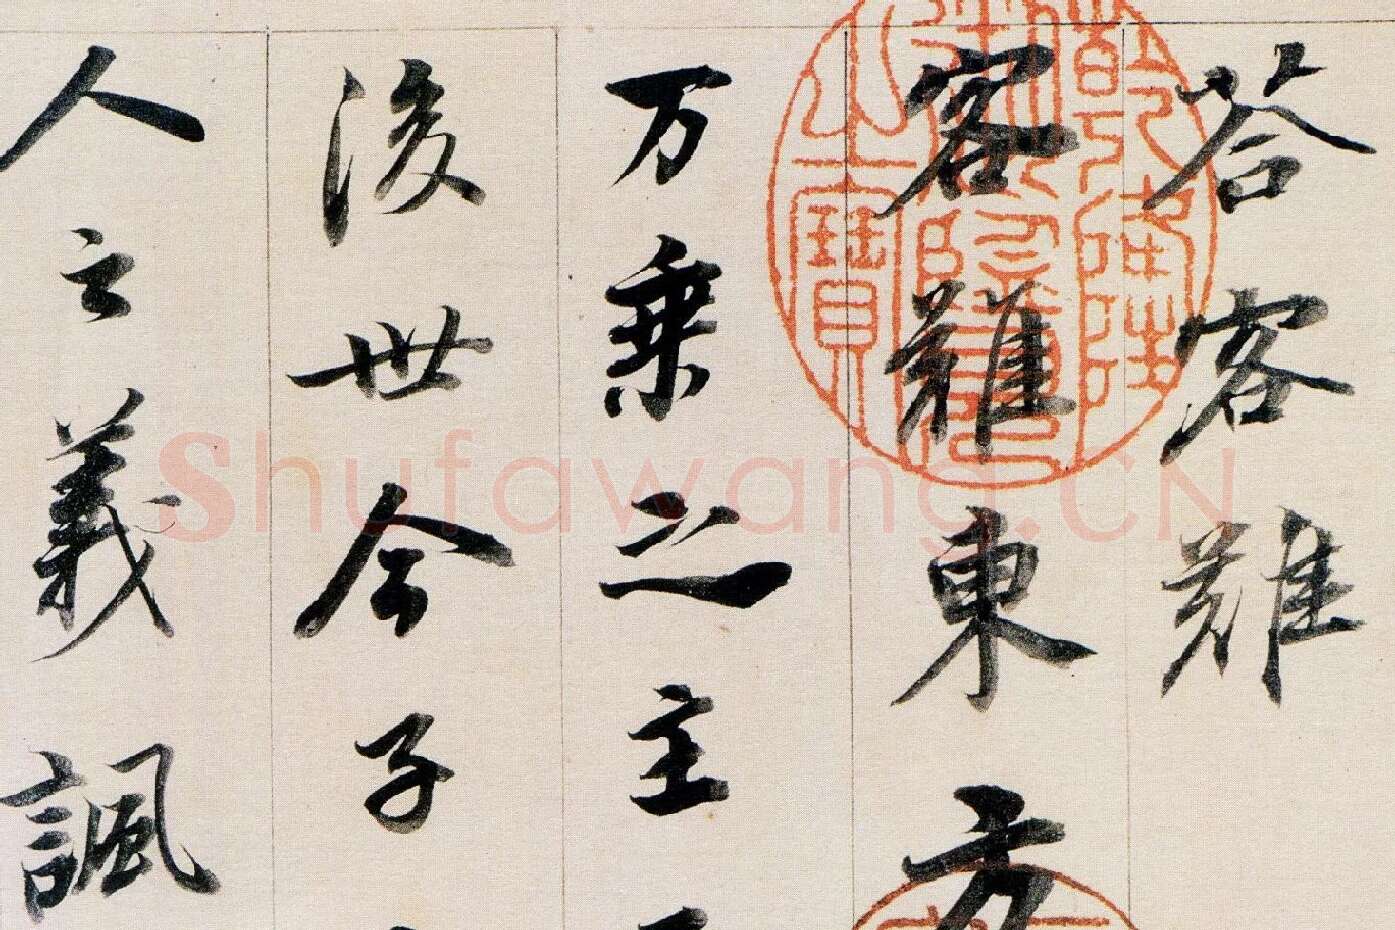 答客難
客難東方
万乘之主
後世今子
人之義諷
Shufawang.CN